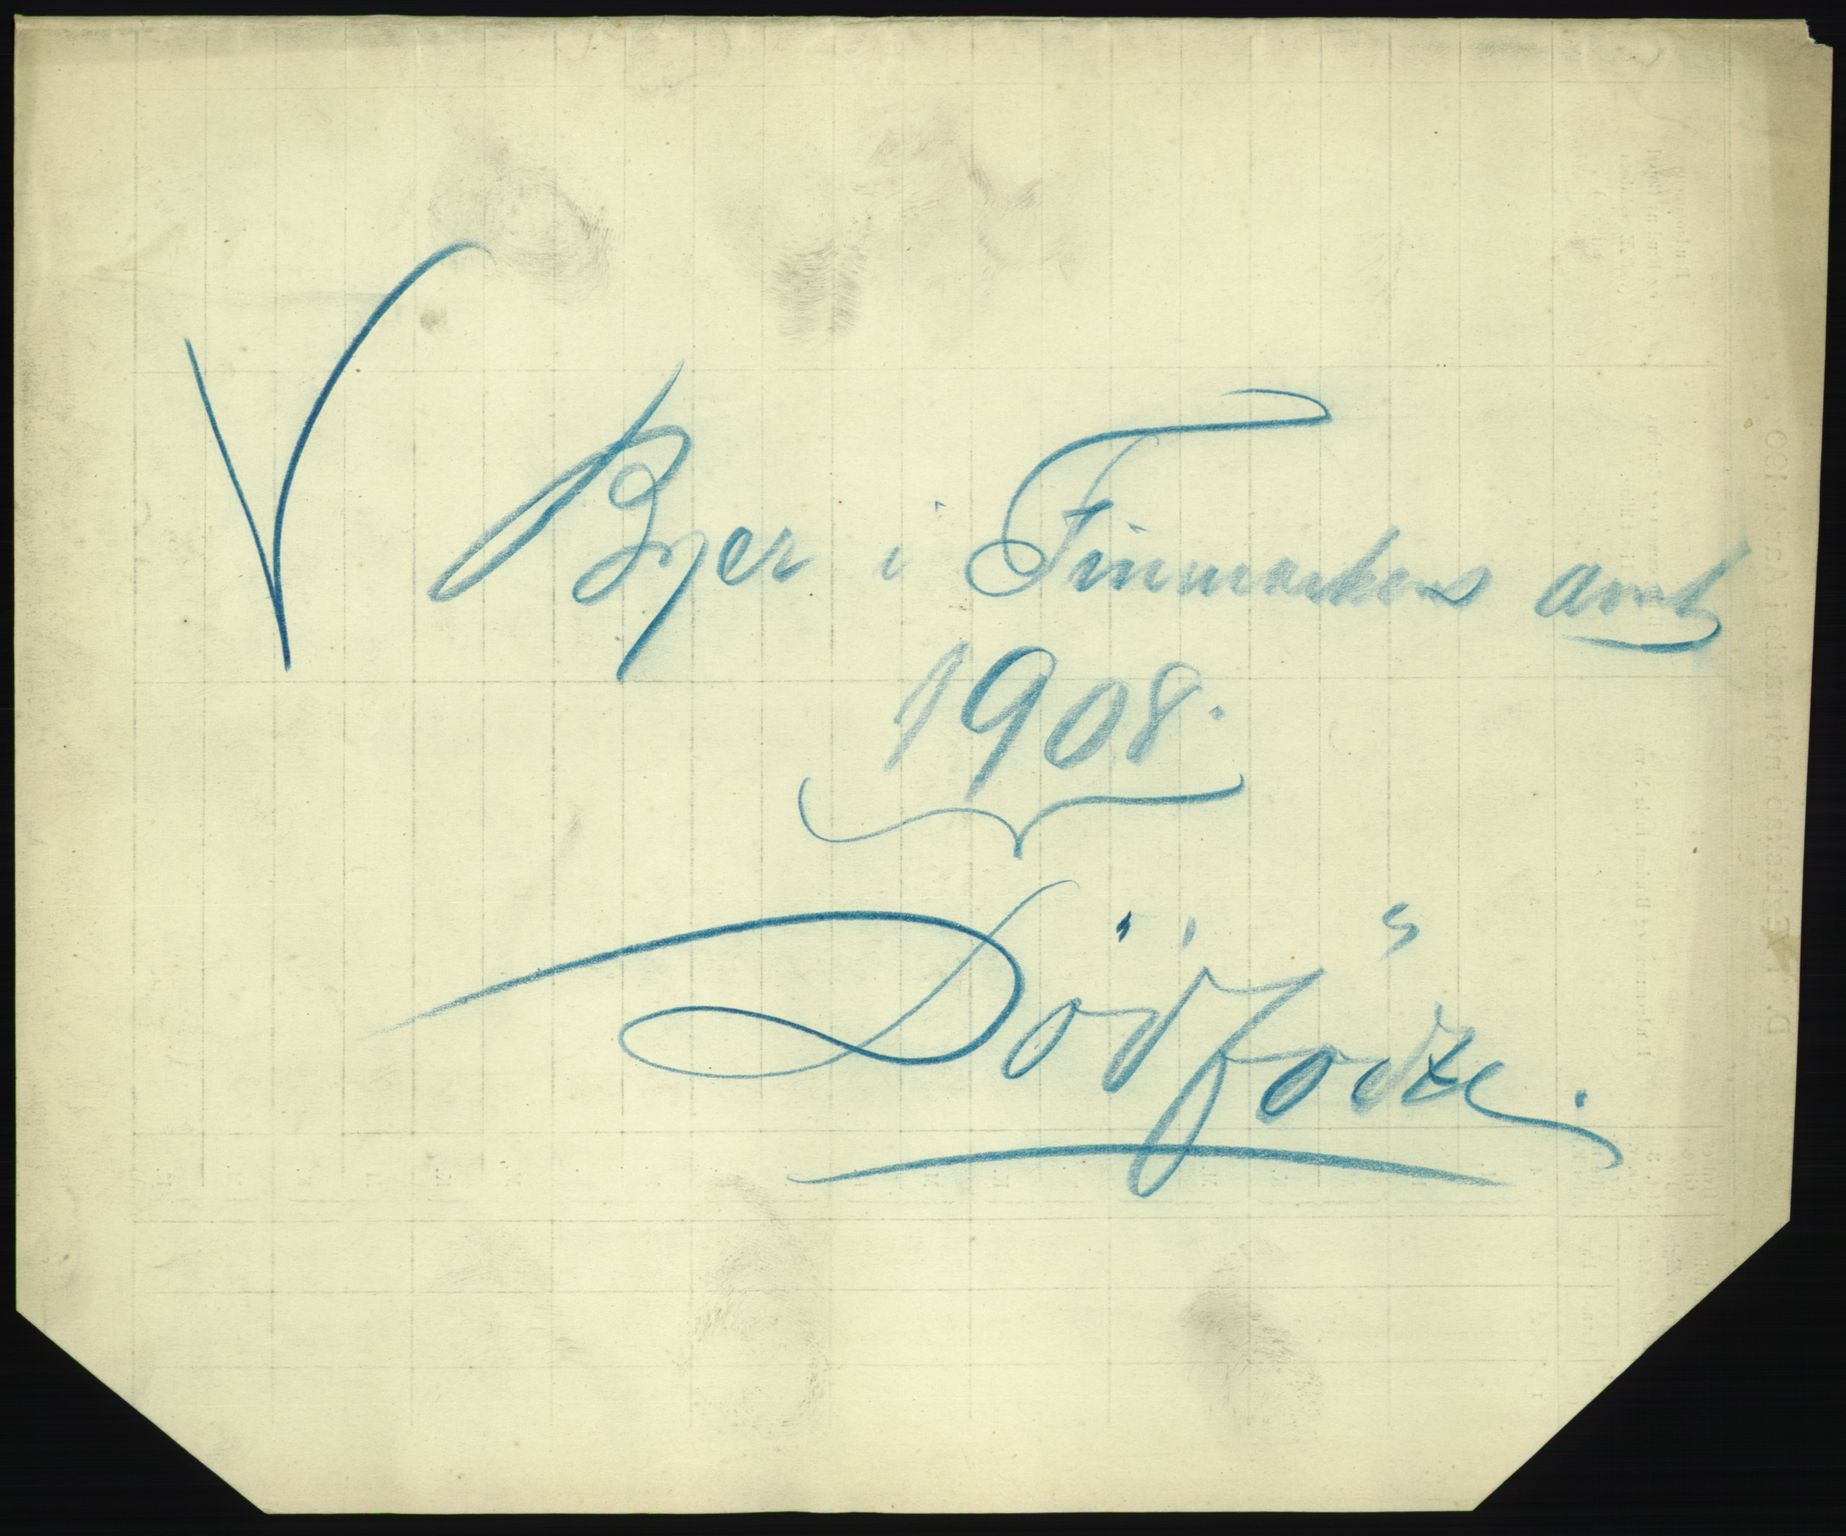 V Byer i Finmarkens amt
1908.
Dödfödte.